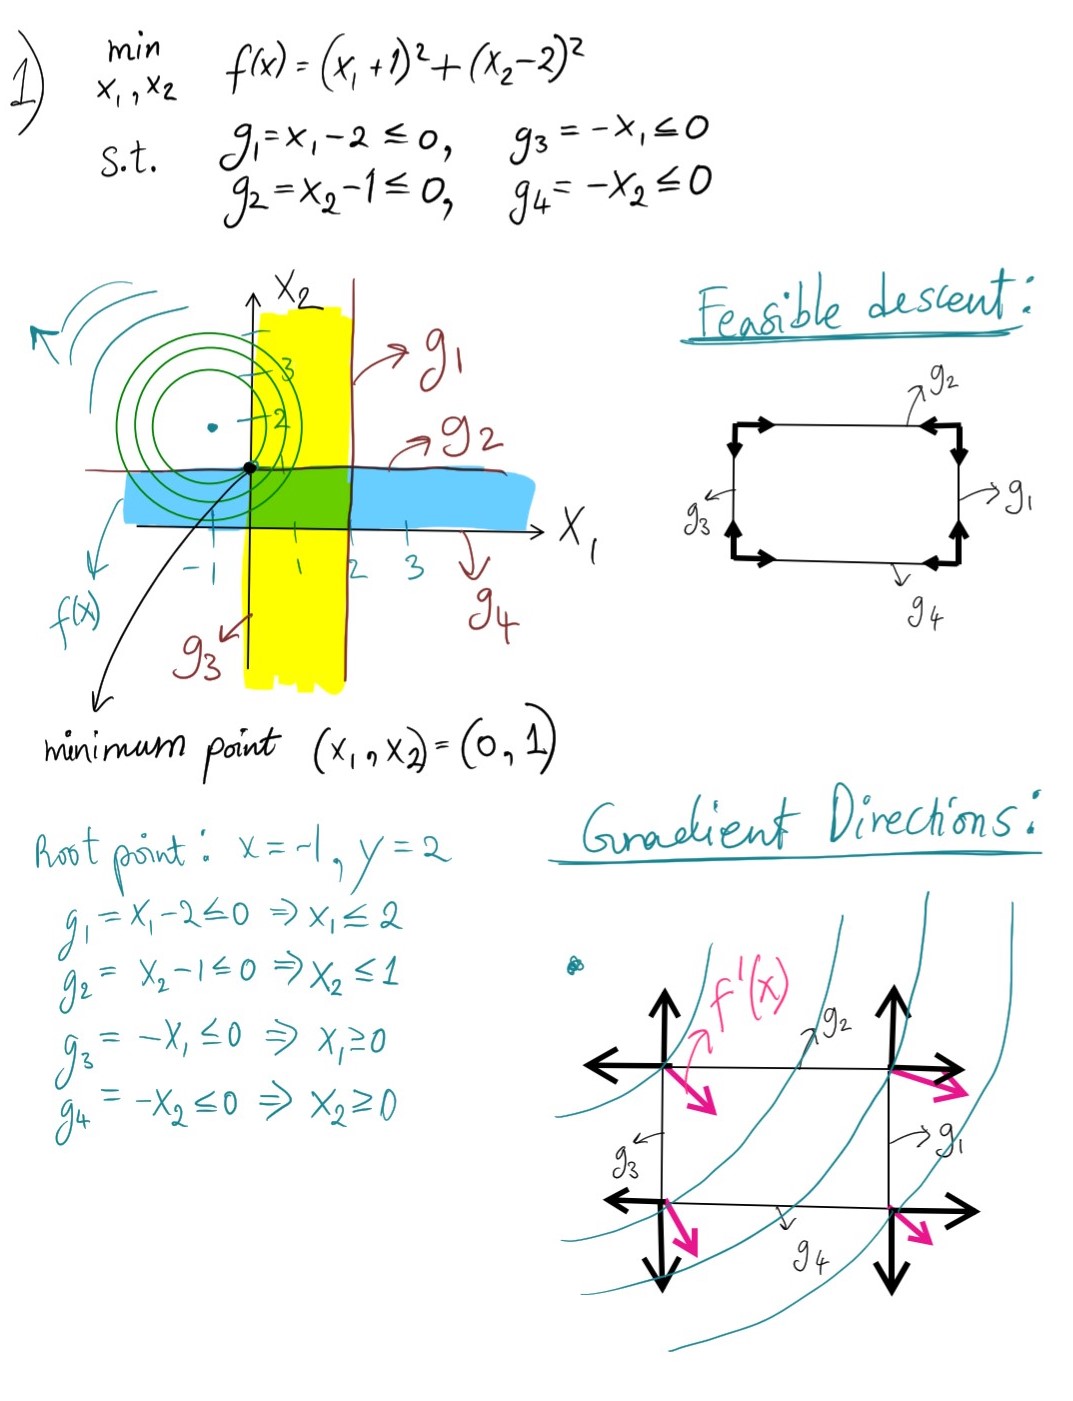 1) min f(x) = (x₁+1)²+(x₂-2)²
x₁,x₂
s.t. g₁=x₁-2≤0, g₃=-x₁≤0
g₂=x₂-1≤0, g₄=-x₂≤0
x₂
g₁
3
g₂
2
1
x₁
-1 1 2 3
f(x)
g₄
g₃
minimum point (x₁,x₂)=(0,1)
Feasible descent:
g₂
g₃ g₁
g₄
Root point: x=-1, y=2
g₁=x₁-2≤0 ⇒ x₁≤2
g₂=x₂-1≤0 ⇒ x₂≤1
g₃=-x₁≤0 ⇒ x₁≥0
g₄=-x₂≤0 ⇒ x₂≥0
Gradient Directions:
f'(x)
g₂
g₃ g₁
g₄